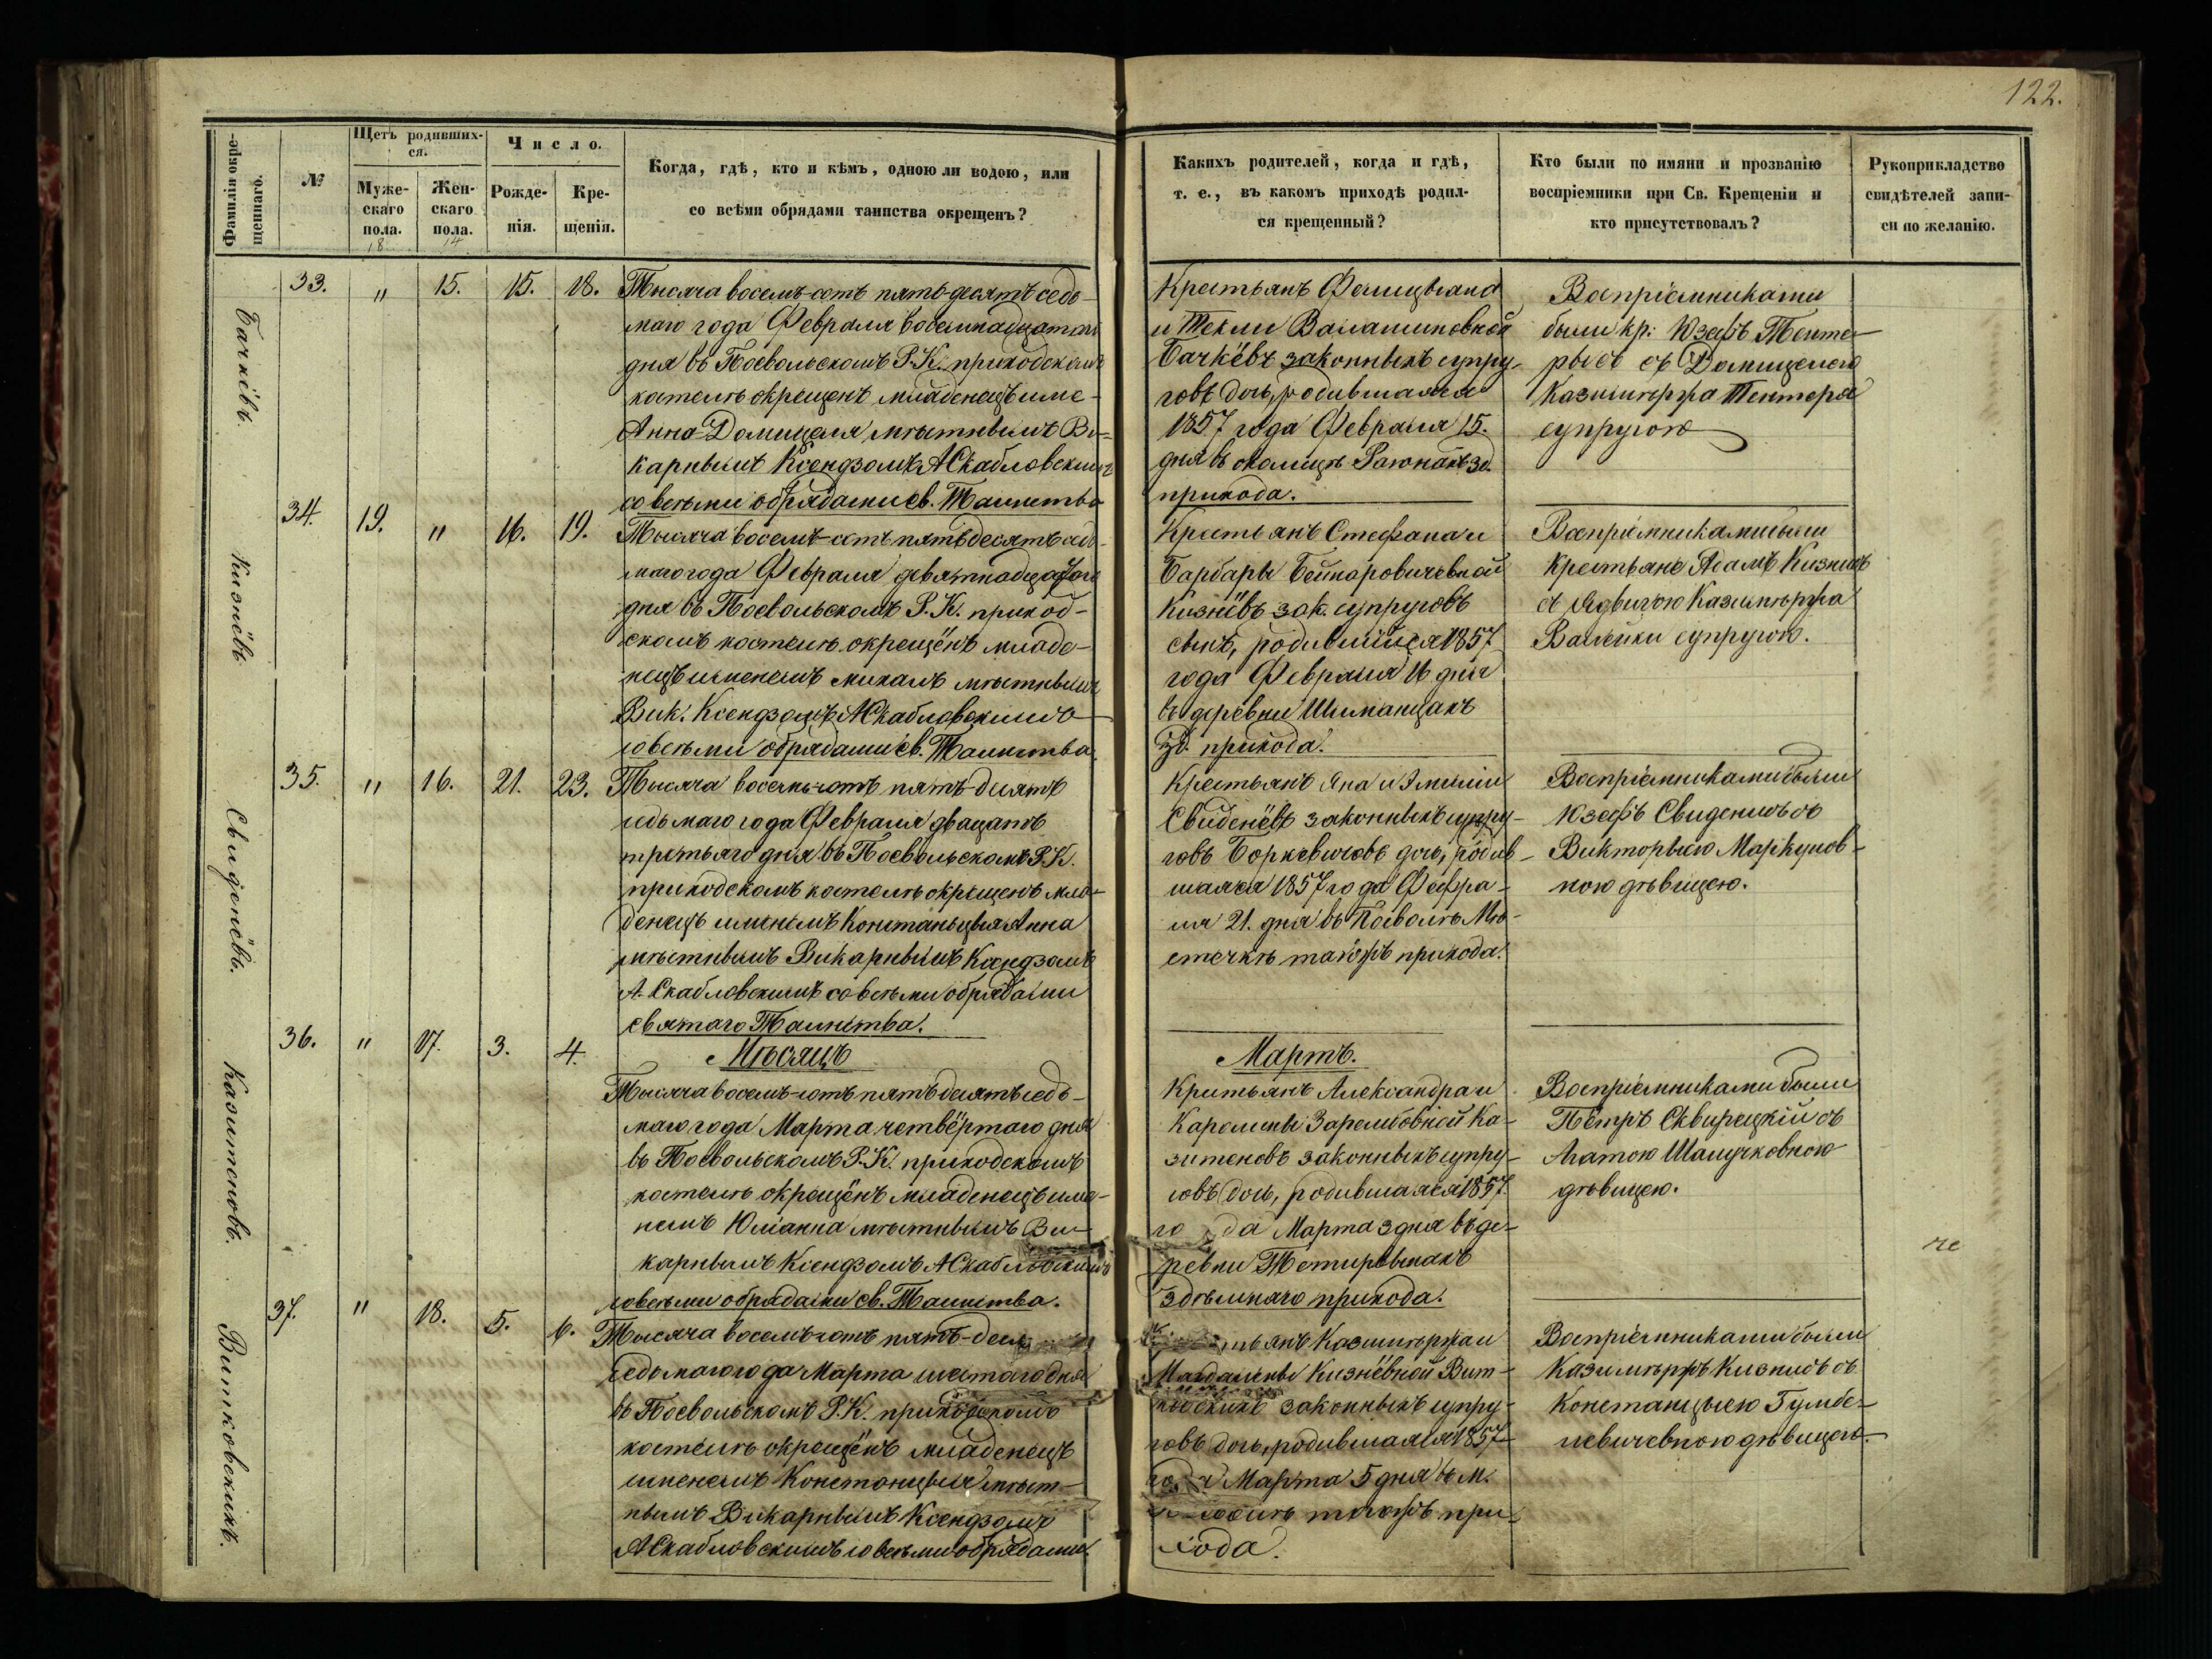 122.
Фамилія окре-
щеннаго.
№
Щетъ родивших-
ся.
Муже-
скаго
пола.
18
Жен-
скаго
пола.
14
Число.
Рожде-
нія.
Кре-
щенія.
Когда, гдѣ, кто и кѣмъ, одною ли водою, или
со всѣми обрядами таинства окрещенъ?
Какихъ родителей, когда и гдѣ,
т. е., въ какомъ приходѣ родил-
ся крещенный?
Кто были по имяни и прозванію
воспріемники при Св. Крещеніи и
кто присутствовалъ?
Рукоприкладство
свидѣтелей запи-
си по желанію.
Бачківъ.
33. " 15. 15. 18.
Тысяча восемь-сотъ пять-десятъ седь-
маго года Февраля восемнадцатаго
дня въ Посвольскомъ Р.К. приходскомъ
костелѣ окрещенъ младенецъ име-
Анна-Домицеля мѣстнымъ Ви-
карнымъ Ксендзомъ А Скабловскимъ
со всѣми обрядами св. Таинства
Крестьянъ Фелицыана
и Текли Валашиновной
Бачкёвъ законныхъ супру-
говъ дочь, родившаяся
1857 года Февраля 15.
дня въ околицѣ Раюнахъ зд.
прихода.
Воспріемниками
были кр: Юзефъ Пенте-
рысъ съ Домицелею
Казимѣржа Пентеря
супругою
Кизнёвъ
34. 19. " 16. 19.
Тысяча восемь-сотъ пятьдесятъ седь-
маго года Февраля девятнадцатаго
дня въ Посвольскомъ Р.К. приход-
скомъ костелѣ окрещёнъ младе-
нецъ именемъ Михалъ мѣстнымъ
Вик. Ксендзомъ А Скабловскимъ
со всѣми обрядами св. Таинства.
Крестьянъ Стефана и
Барбары Бейнаровичевной
Кизнёвъ зак. супруговъ
сынъ, родившійся 1857
года Февраля 16 дня
въ деревни Шиманцахъ
зд. прихода.
Воспріемниками были
Крестьяне Адамъ Кизнисъ
съ Ядвигою Казимѣржа
Валейки супругою.
Свиденёвъ.
35. " 16. 21. 23.
Тысяча восемь-сотъ пять-десятъ
седьмаго года Февраля двацать
третьяго дня въ Посвольскомъ Р.К.
приходскомъ костелѣ окрещенъ мла-
денецъ именемъ Констанцыя Анна
мѣстнымъ Викарнымъ Ксендзомъ
А. Скабловскимъ со всѣми обрядами
святаго Таинства.
Крестьянъ Яна и Эмиліи
Свиденёвъ законныхъ супру-
говъ Боркевичовъ дочь, родив-
шаяся 1857 года Февра-
ля 21. дня въ Посволѣ Мѣ-
стечкѣ тагожъ прихода.
Воспріемниками были
Юзефъ Свиденисъ съ
Викторыею Маркунов-
ною дѣвицею.
Мѣсяцъ
Мартъ.
Казитеновъ.
36. " 17. 3. 4.
Тысяча восемь-сотъ пятьдесятъ седь-
маго года Марта четвёртаго дня
въ Посвольскомъ Р.К. приходскомъ
костелѣ окрещёнъ младенецъ име-
немъ Юліанна мѣстнымъ Ви-
карнымъ Ксендзомъ А Скабловскимъ
со всѣми обрядами св. Таинства.
Крестьянъ Александра и
Каролины Зарембовной Ка-
зитеновъ законныхъ супру-
говъ дочь, родившаяся 1857
го да Марта 3 дня въ де-
ревни Тетирвынахъ
здѣшняго прихода.
Воспріемниками были
Пётръ Сквирецкій съ
Агатою Шамучковною
дѣвицею.
че
Витковскихъ.
37. " 18. 5. 6.
Тысяча восемь-сотъ пять-деся
седьмаго года Марта шестаго дня
въ Посвольскомъ Р.К. приходскомъ
костелѣ окрещёнъ младенецъ
именемъ Констанцыя мѣст-
нымъ Викарнымъ Ксендзомъ
А Скабловскимъ со всѣми обрядами
тьянъ Казимѣржа и
Магдалены Кизнёвной Вит-
ковскихъ законныхъ супру-
говъ дочь, родившаяся 1857
года Марта 5 дня въ м.
тагожъ при-
хода.
Воспріемниками были
Казимѣржъ Кизнисъ съ
Констанцыею Гумбе-
левичевною дѣвицею.